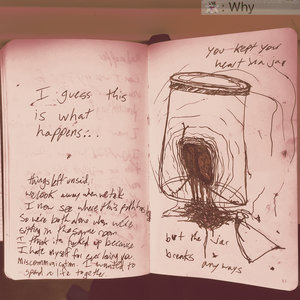 : Why
I guess this
is what
happens...
things left unsaid,
we look away when we talk
I now see where this path led
So we're both alone when we're
sitting in the same room
I think to fucked up because
I hate myself for ever being you
Miscommunication. I wanted to
spend a life together
You kept your
heart in a jar
but the jar
breaks
any ways